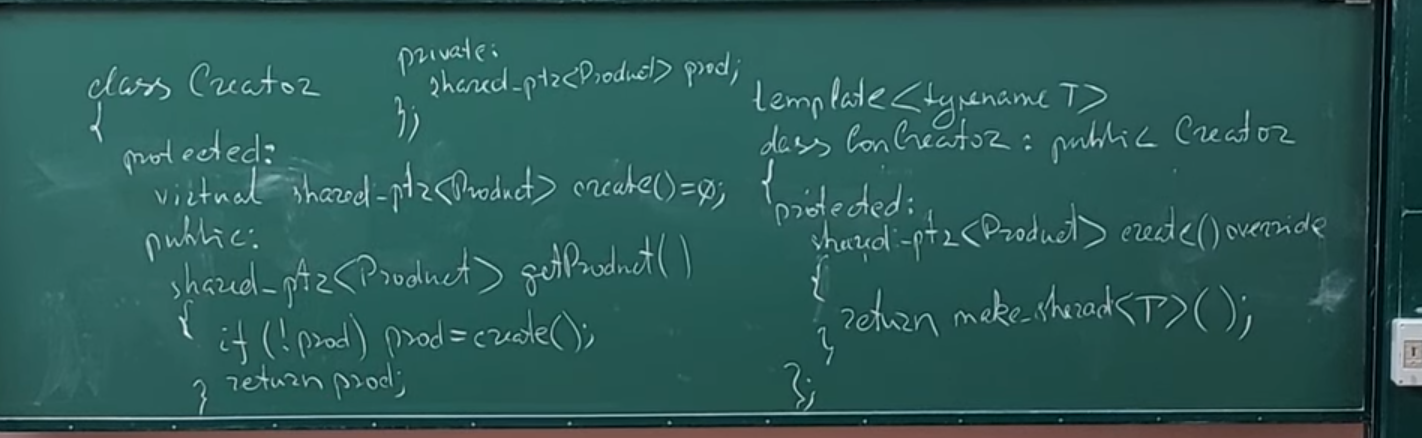 class Creator
{
protected:
virtual shared_ptr<Product> create()=0;
public:
shared_ptr<Product> getProduct()
{
if (!prod) prod=create();
return prod;
}
private:
shared_ptr<Product> prod;
};
template<typename T>
class ConCreator: public Creator
{
protected:
shared_ptr<Product> create() override
{
return make_shared<T>();
}
};